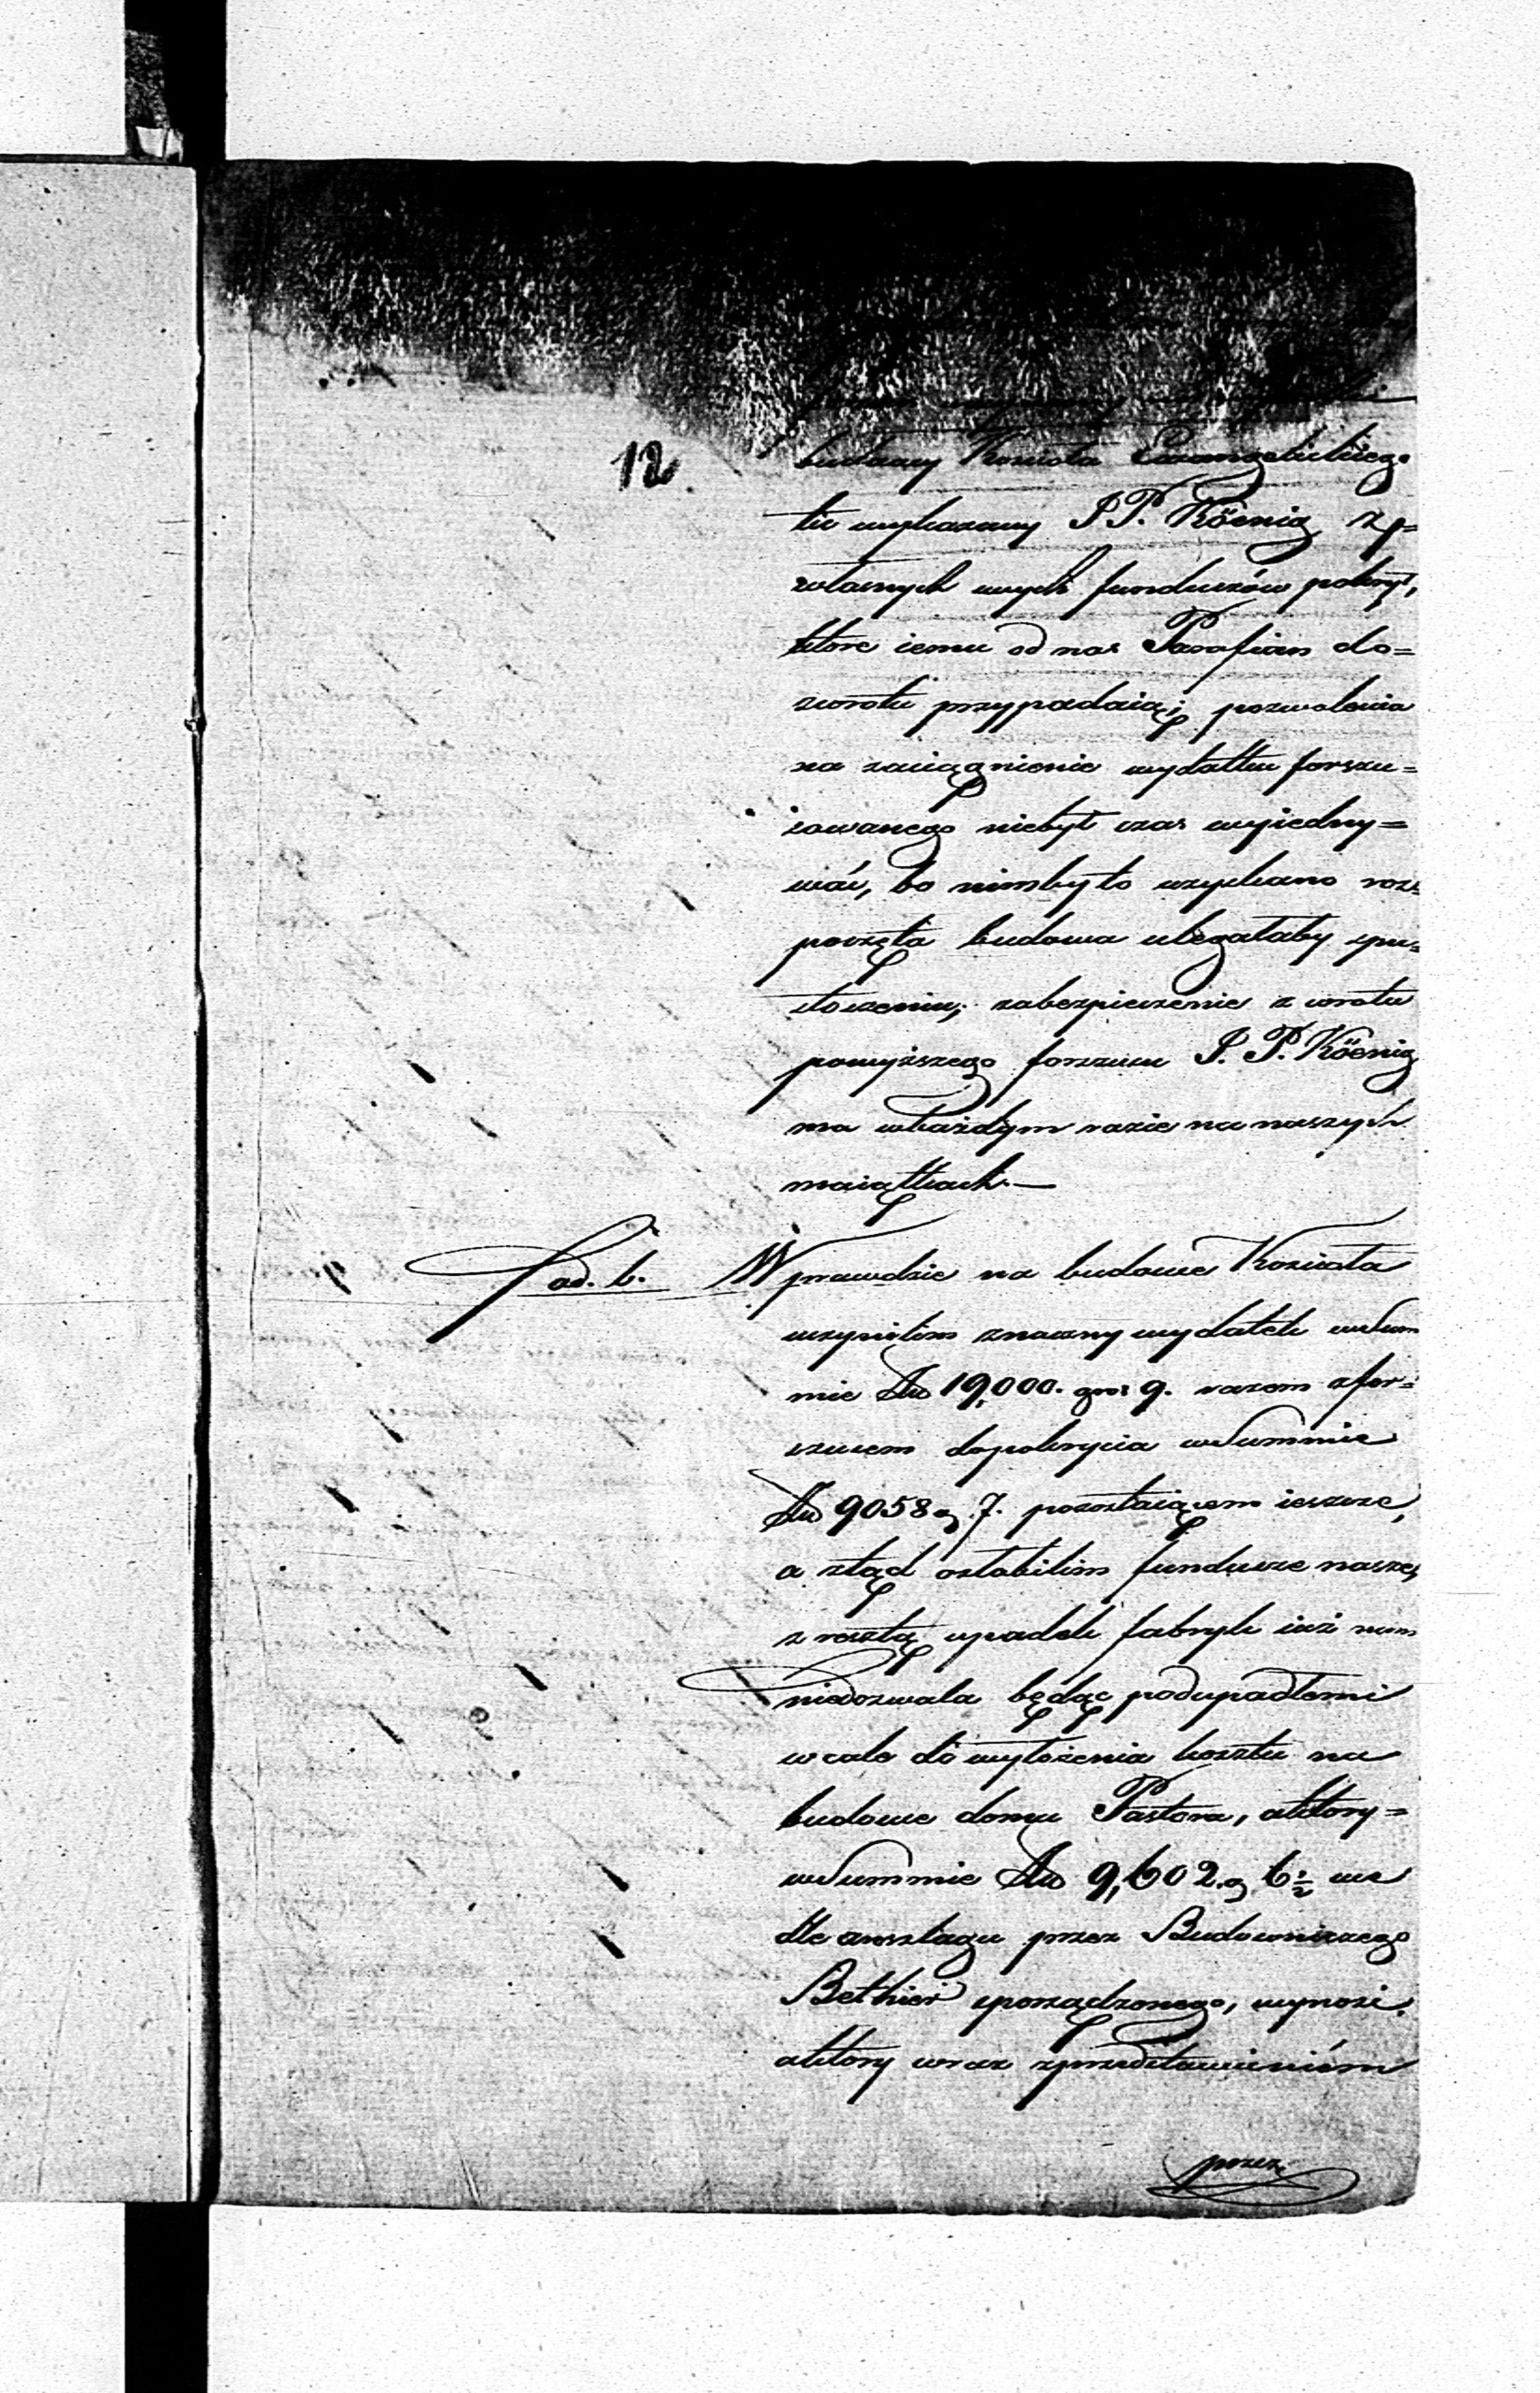 12
budowy Koscioła Ewangelickiego
tu wykazany J P. Köenig z p=
własnych swych funduszów pokrył,
które iemu od nas Parafian do=
zwrotu przypadaią; pozwolenia
na zaciągnienie wydatku forszu=
sowanego niebył czas wyiedny=
wać, bo nimby to uzyskano roz=
poczęta budowa ulegałaby spu=
stoszeniu; zabezpieczenie zwrotu
powyższego forszusu J. P. Köenig
ma wkażdym razie na naszych
maiątkach.—
ad. b. Wprawdzie na budowe Koscioła
uczynilim znaczny wydatek wSum
mie 19,000. gro: 9. razem zfor=
szusem dopokrycia wSummie
9058 g. 7. pozostaiącem ieszcze,
a ztąd osłabilim fundusze nasze,
zresztą upadek fabryk iuż nam
niedozwala będąc podupadłemi
wcale do wyłożenia kosztu na
budowe domu Pastora, aktory=
wSummie 9,602. g. 6½ we
dle anszlagu przez Budowniczego
Bethier sporządzonego, wynosi.
aktory wraz zprzedstawieniém
przez